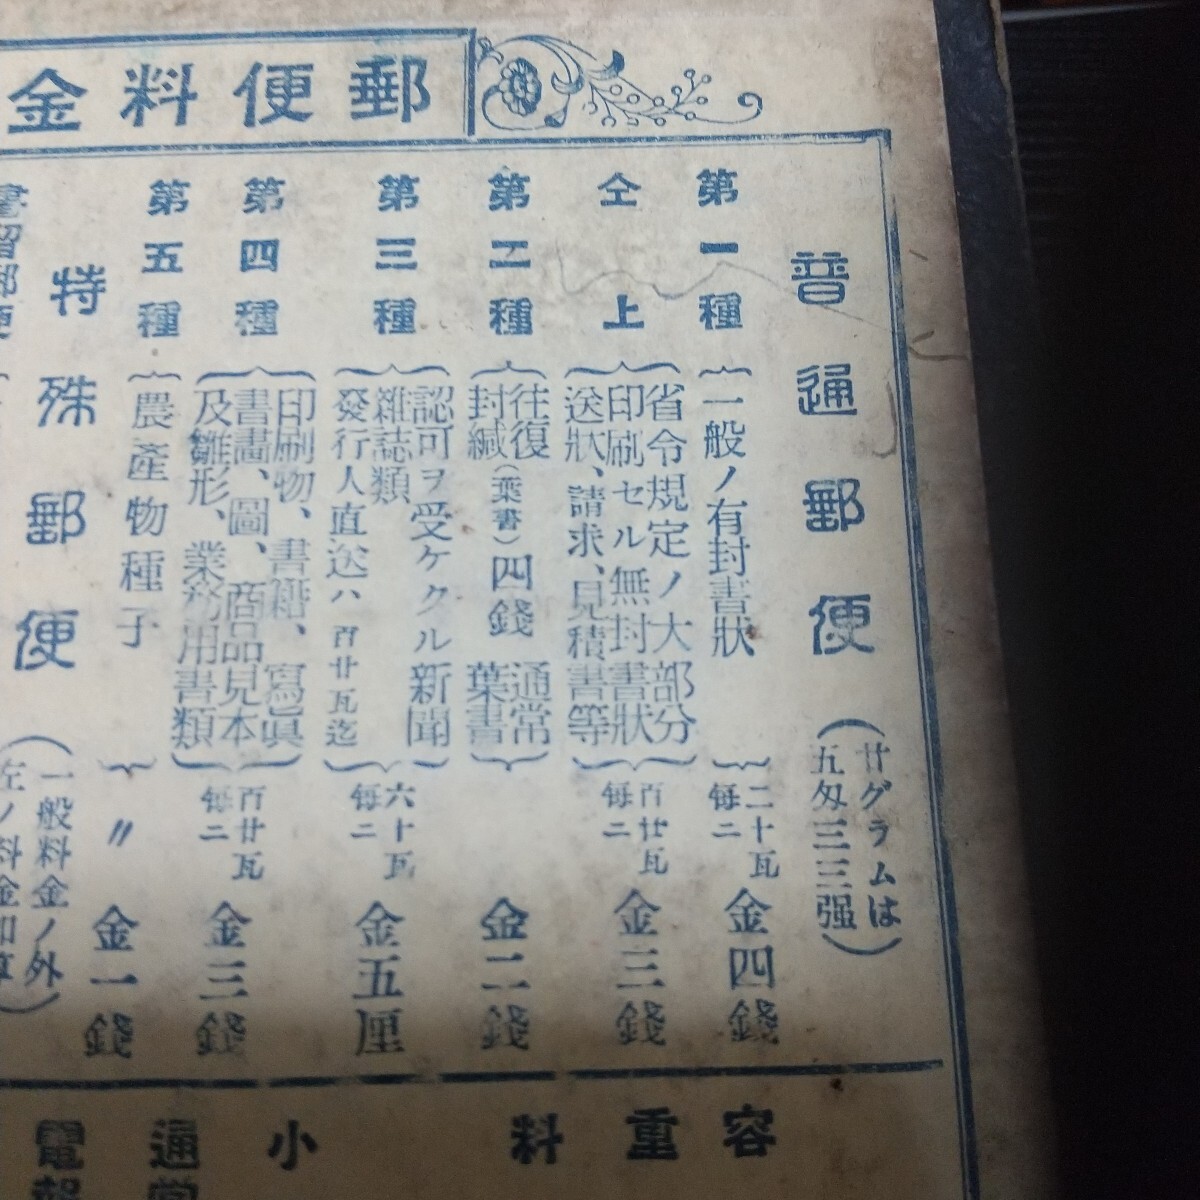 郵便料金
普通郵便
(廿グラムは
五匁三三强)
第一種
一般ノ有封書狀
二十瓦
每ニ
金四錢
仝上
省令規定ノ大部分
印刷セル無封書狀
送狀、請求、見積書等
百廿瓦
每ニ
金三錢
第二種
往復
封緘
(葉書)
四錢
通常
葉書
金二錢
第三種
認可ヲ受ケタル新聞
雜誌類
發行人直送ハ百廿瓦迄
六十瓦
每ニ
金五厘
第四種
印刷物、書籍、寫眞
書畫、圖、商品見本
及雛形、業務用書類
百廿瓦
每ニ
金三錢
第五種
農產物種子
〃
金一錢
特殊郵便
(一般料金ノ外
左ノ料金加算)
書留郵便
容重料
小
通常
電報